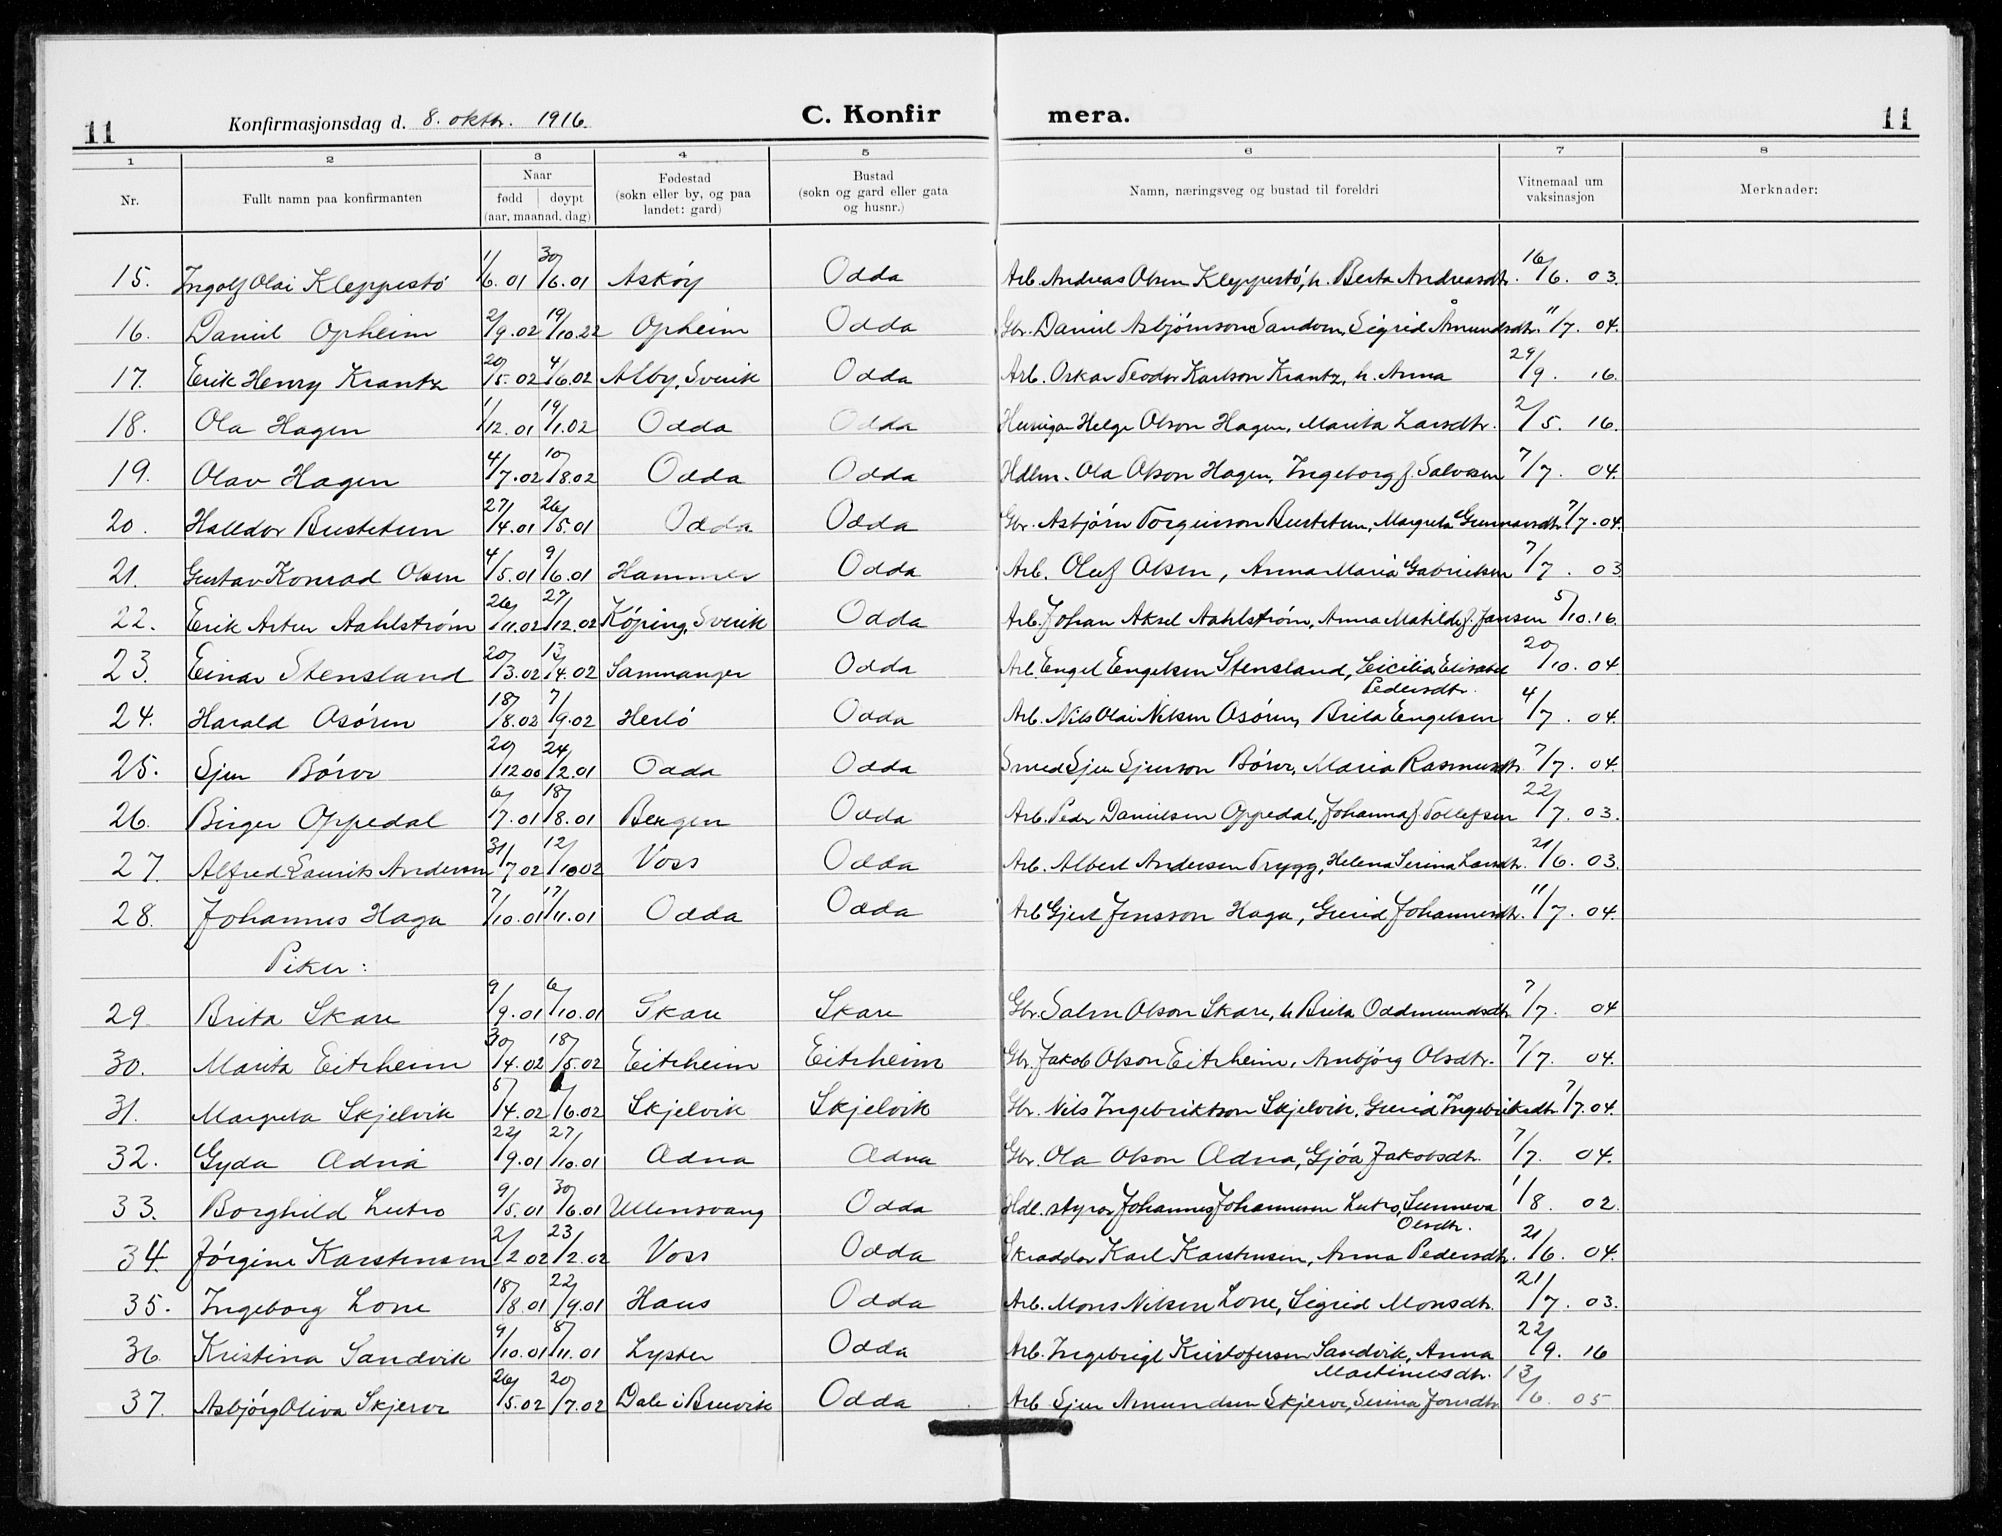 11 Konfirmasjonsdag d. 8. oktbr. 1916. C. Konfir mera. 11
1 2 3 4 5 6 7 8
Nr. Fullt namn paa konfirmanten Naar fødd døypt (aar, maanad, dag) Fødestad (sokn eller by, og paa landet: gard) Bustad (sokn og gard eller gata og husnr.) Namn, næringsveg og bustad til foreldri Vitnemaal um vaksinasjon Merknader:
15. Ingolf Olai Kleppestö 1/6.01 30/6.01 Asköy Odda Arb. Andreas Olsen Kleppestö, h. Berta Andreasdtr. 16/6. 03.
16. Daniel Opheim 2/9.02 19/10.22 Opheim Odda Gbr. Daniel Asbjörnson Sandven, Sigrid Åmundsdtr. 11/7. 04.
17. Erik Henry Krantz 20/5.02 4/6.02 Alby, Sverik Odda Arb. Oskar Teodor Karlson Krantz, h. Anna 29/9. 16.
18. Ola Hagen 1/12.01 19/1.02 Odda Odda Helge Olson Hagen, Marita Larsdtr. 2/5. 16.
19. Olav Hagen 4/7.02 10/8.02 Odda Odda Hdlm. Ola Olson Hagen, Ingeborg f. Salvesen 7/7. 04.
20. Halldor Bustetun 27/4.01 26/5.01 Odda Odda Gbr. Asbjörn Torgeirson Bustetun, Margreta Gunnarsdtr 7/7. 04.
21. Gustav Konrad Olsen 4/5.01 9/6.01 Hammer Odda Arb. Oluf Olsen, Anna Maria Gabrielsen 7/7. 03
22. Erik Artur Aahlström 26/11.02 27/12.02 Köping, Sverik Odda Arb. Johan Aksel Aahlstrøm, Anna Matilde f. Jansen 5/10.16.
23. Einar Stensland 20/3.02 13/4.02 Samnanger Odda Arb. Engel Engelsen Stensland, Cicilia Elisabet Pedersdtr. 20/10. 04
24. Harald Osören 18/8.02 7/9.02 Herlö Odda Arb. Nils Olai Nilsen Osören, Brita Engelsen 4/7. 04.
25. Sjur Börve 20/12 00 24/2.01 Odda Odda Smed Sjur Sjurson Börve, Maria Rasmusdtr. 7/7. 04.
26. Birger Oppedal 6/7.01 18/8.01 Bergen Odda Arb. Peder Danielsen Oppedal, Johanna f Tollefsen 22/7. 03.
27. Alfred Laurits Andersen 31/7 02 12/10 02 Voss Odda Arb. Albert Andersen Trygg, Helena Serina Larsdtr. 21/6. 03.
28. Johannes Haga 7/10.01 17/11.01 Odda Odda Arb Gjert Jensson Haga, Gurid Johannesdtr. 11/7. 04.
Piker:
29. Brita Skare 9/9.01 6/10.01 Skare Skare Gbr. Salm Olson Skare, h Brita Oddmundsdtr 7/7. 04
30. Marita Eitrheim 30/4.02 18/5.02 Eitrheim Eitrheim Gbr. Jakob Olson Eitrheim, Arnbjörg Olsdtr. 7/7. 04.
31. Margreta Skjelvik 5/4.02 /6.02 Skjelvik Skjelvik Gbr. Nils Ingebriktson Skjelvik, Gurid Ingebriktsdtr 7/7.04.
32. Gyda Ædna 22/9.01 27/10.01 Ædna Ædna Gbr. Ola Olson Ædna, Gjöa Jakobsdtr. 7/7. 04.
33. Borghild Lutro 9/5.01 30/6.01 Ullensvang Odda Hdl. styrar Johannes Johannesen Lutro, Sunneva Olsdtr. 1/8. 02.
34. Jørgine Karstensen 2/2.02 23/2.02 Voss Odda Skraddar Karl Karstensen, Anna Pedersdtr. 21/6. 04.
35. Ingeborg Lone 18/8.01 22/9.01 Haus Odda Arb. Mons Nilsen Lone, Sigrid Monsdtr. 21/7. 03.
36. Kristina Sandvik 9/10.01 8/11.01 Lyster Odda Arb. Ingebrigt Kristofersen Sandvik, Anna Martinusdtr. 22/9. 16
37. Asbjörg Oliva Skjerve 26/5.02 20/7.02 Dale i Bruvik Odda Arb Sjur Amundsen Skjerve, Serina Jonsdtr 13/6. 05